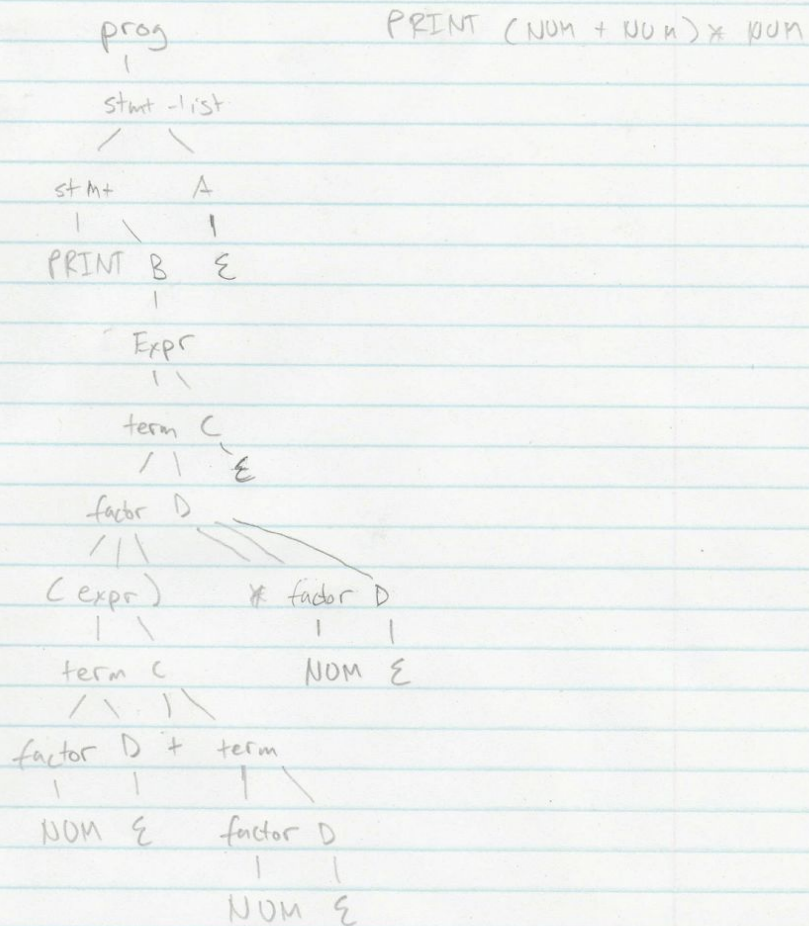 prog PRINT (NUM + NUM) * NUM
stmt-list
stmt A
PRINT B ε
Expr
term C
ε
factor D
(expr) * factor D
term C NUM ε
factor D + term
NUM ε factor D
NUM ε